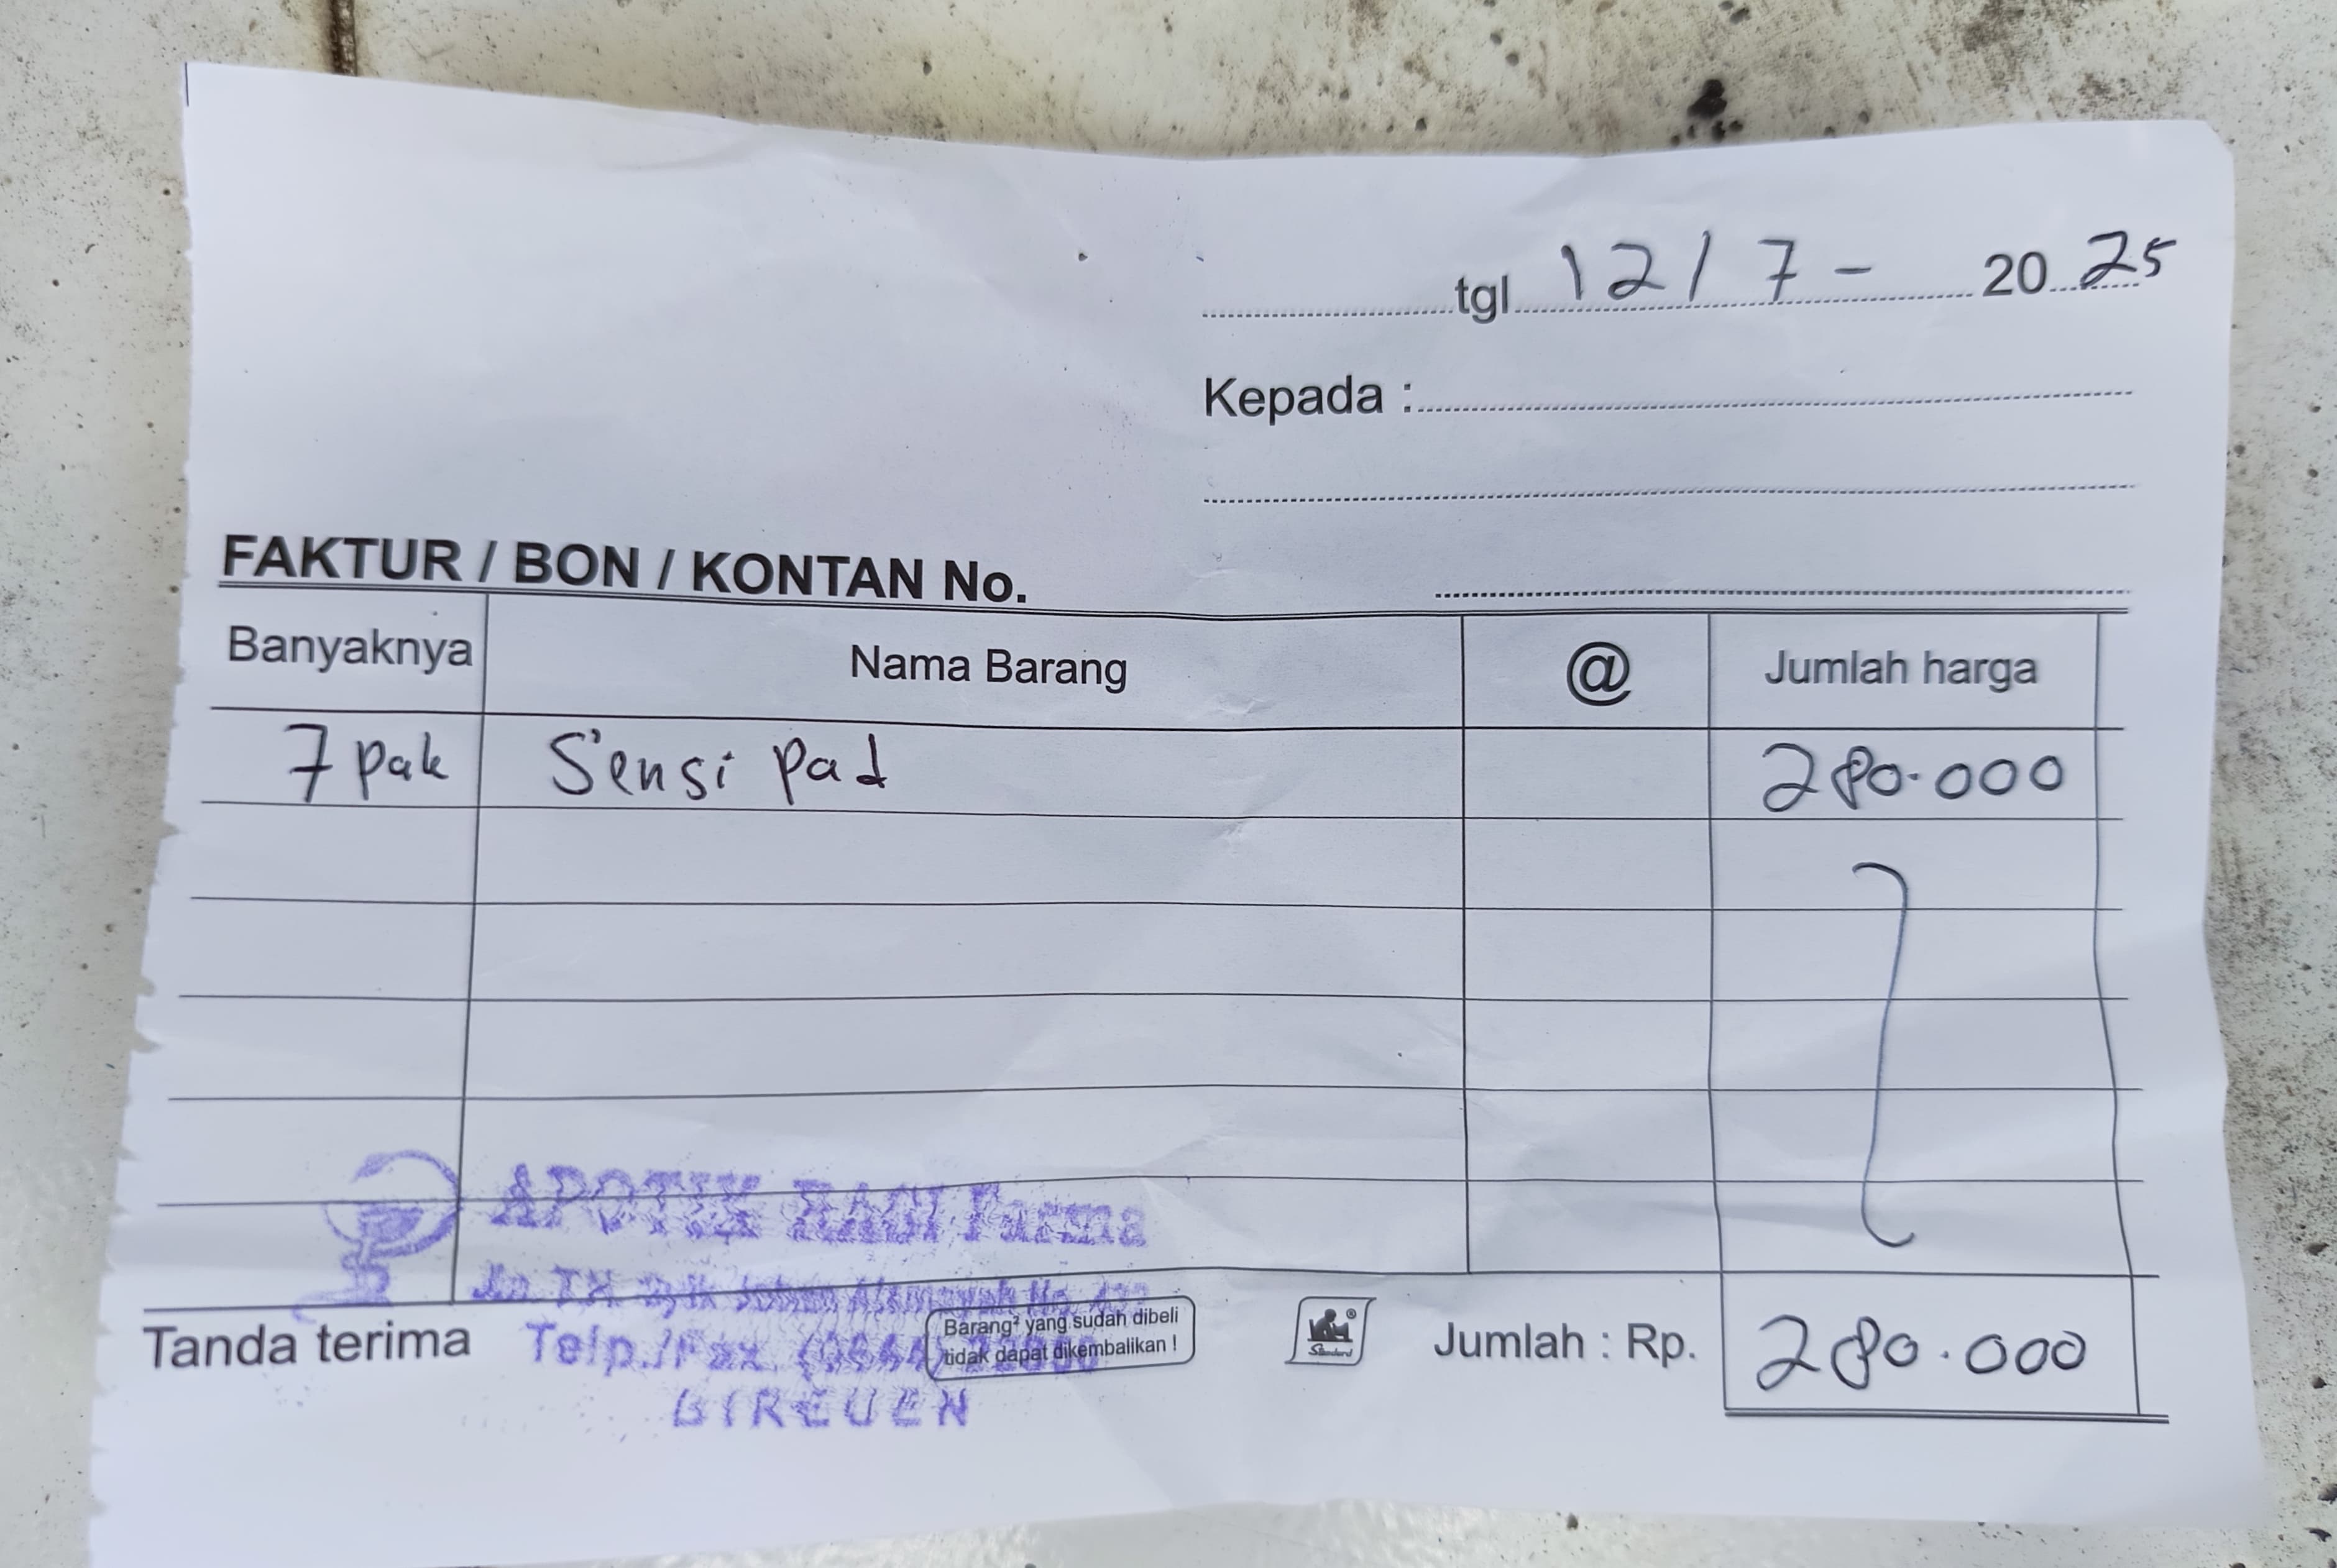 tgl 12/7 - 2025
Kepada :
FAKTUR / BON / KONTAN No.
Banyaknya Nama Barang @ Jumlah harga
7 pak Sensi pad 280.000
APOTIK Farma
Jln.
Tanda terima Telp./Fax.
Barang² yang sudah dibeli
tidak dapat dikembalikan !
Standard
Jumlah : Rp. 280.000
BIREUEN